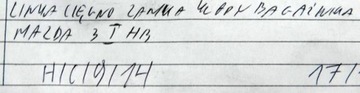 LINKA CIĘGNO ZAMKA KLAPY BAGAŻNIKA
MAZDA 3 I HB
H/C/9/14 17/